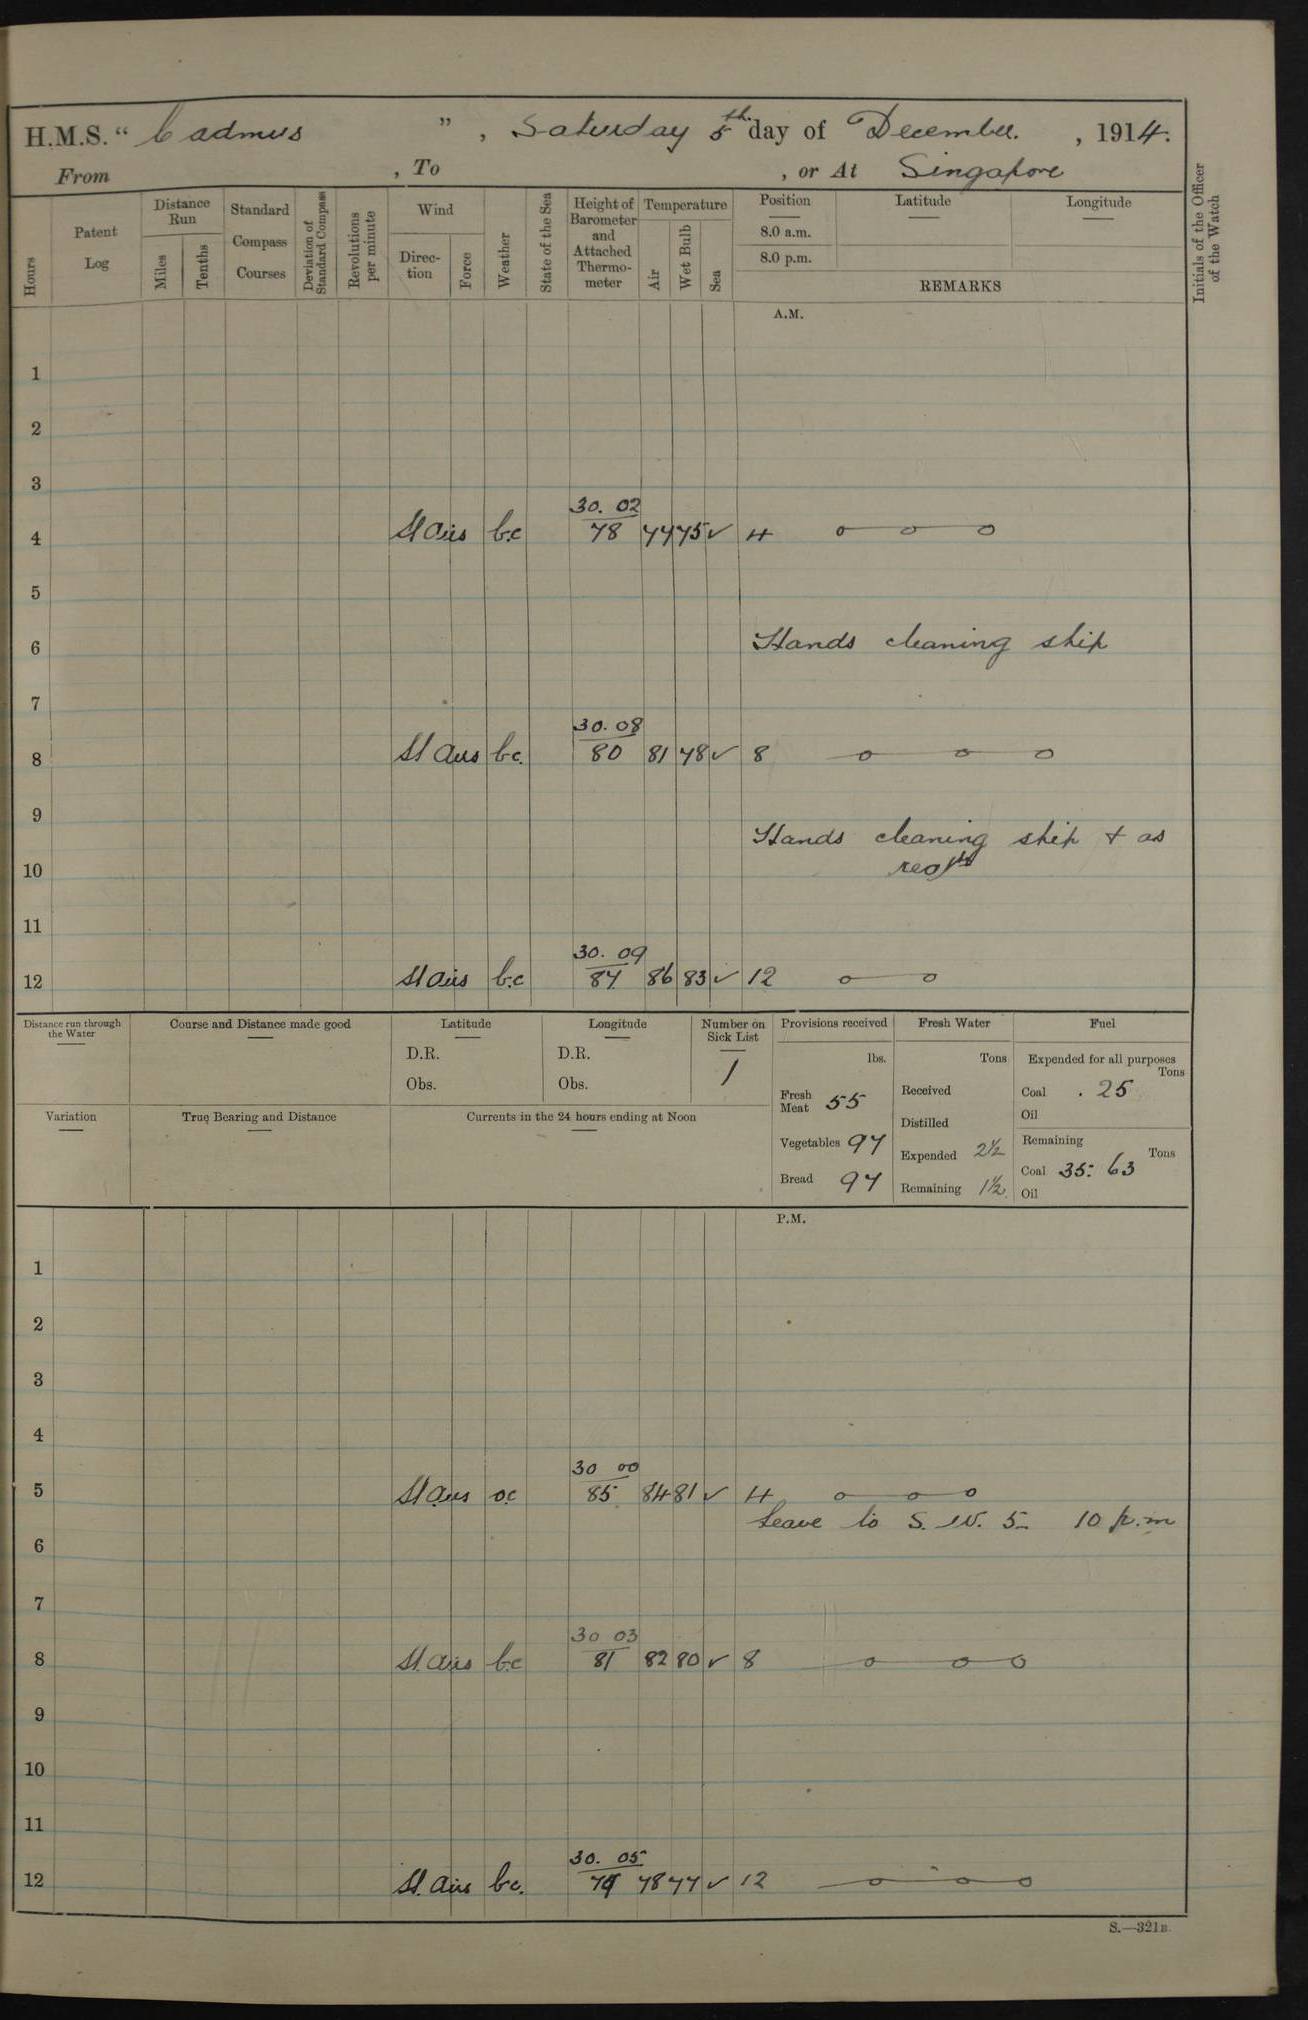 H.M.S. “ Cadmus ” , Saturday 5th day of December. , 1914.
From , To , or At Singapore
Hours
Patent Log
Distance Run
Miles
Tenths
Standard Compass Courses
Deviation of Standard Compass
Revolutions per minute
Wind
Direction
Force
Weather
State of the Sea
Height of Barometer and Attached Thermometer
Temperature
Air
Wet Bulb
Sea
Position
8.0 a.m.
8.0 p.m.
Latitude
Longitude
REMARKS
Initials of the Officer of the Watch
A.M.
1
2
3
30. 02
4 St Airs b.c 78 77 75 ✓ 4
5
6 Hands cleaning ship
7
30. 08
8 St Airs b.c. 80 81 78 ✓ 8
9
Hands cleaning ship + as
10
11
30. 09
12 St Airs b.c 84 86 83 ✓ 12
Distance run through the Water
Course and Distance made good
Latitude
D.R.
Obs.
Longitude
D.R.
Obs.
Number on Sick List
1
Provisions received
lbs.
Fresh Meat 55
Vegetables 97
Bread 97
Fresh Water
Tons
Received
Distilled
Expended 2½
Remaining 1½
Fuel
Expended for all purposes
Tons
Coal . 25
Oil
Remaining
Tons
Coal 35. 63
Oil
Variation
True Bearing and Distance
Currents in the 24 hours ending at Noon
P.M.
1
2
3
4
30 00
5 St airs o.c 85 84 81 ✓ 4
Leave to S. W. 5- 10 p.m
6
7
30 03
8 St. airs b.c 81 82 80 ✓ 8
9
10
11
30. 05
12 St. Airs b.c. 79 78 77 ✓ 12
S.—321B.